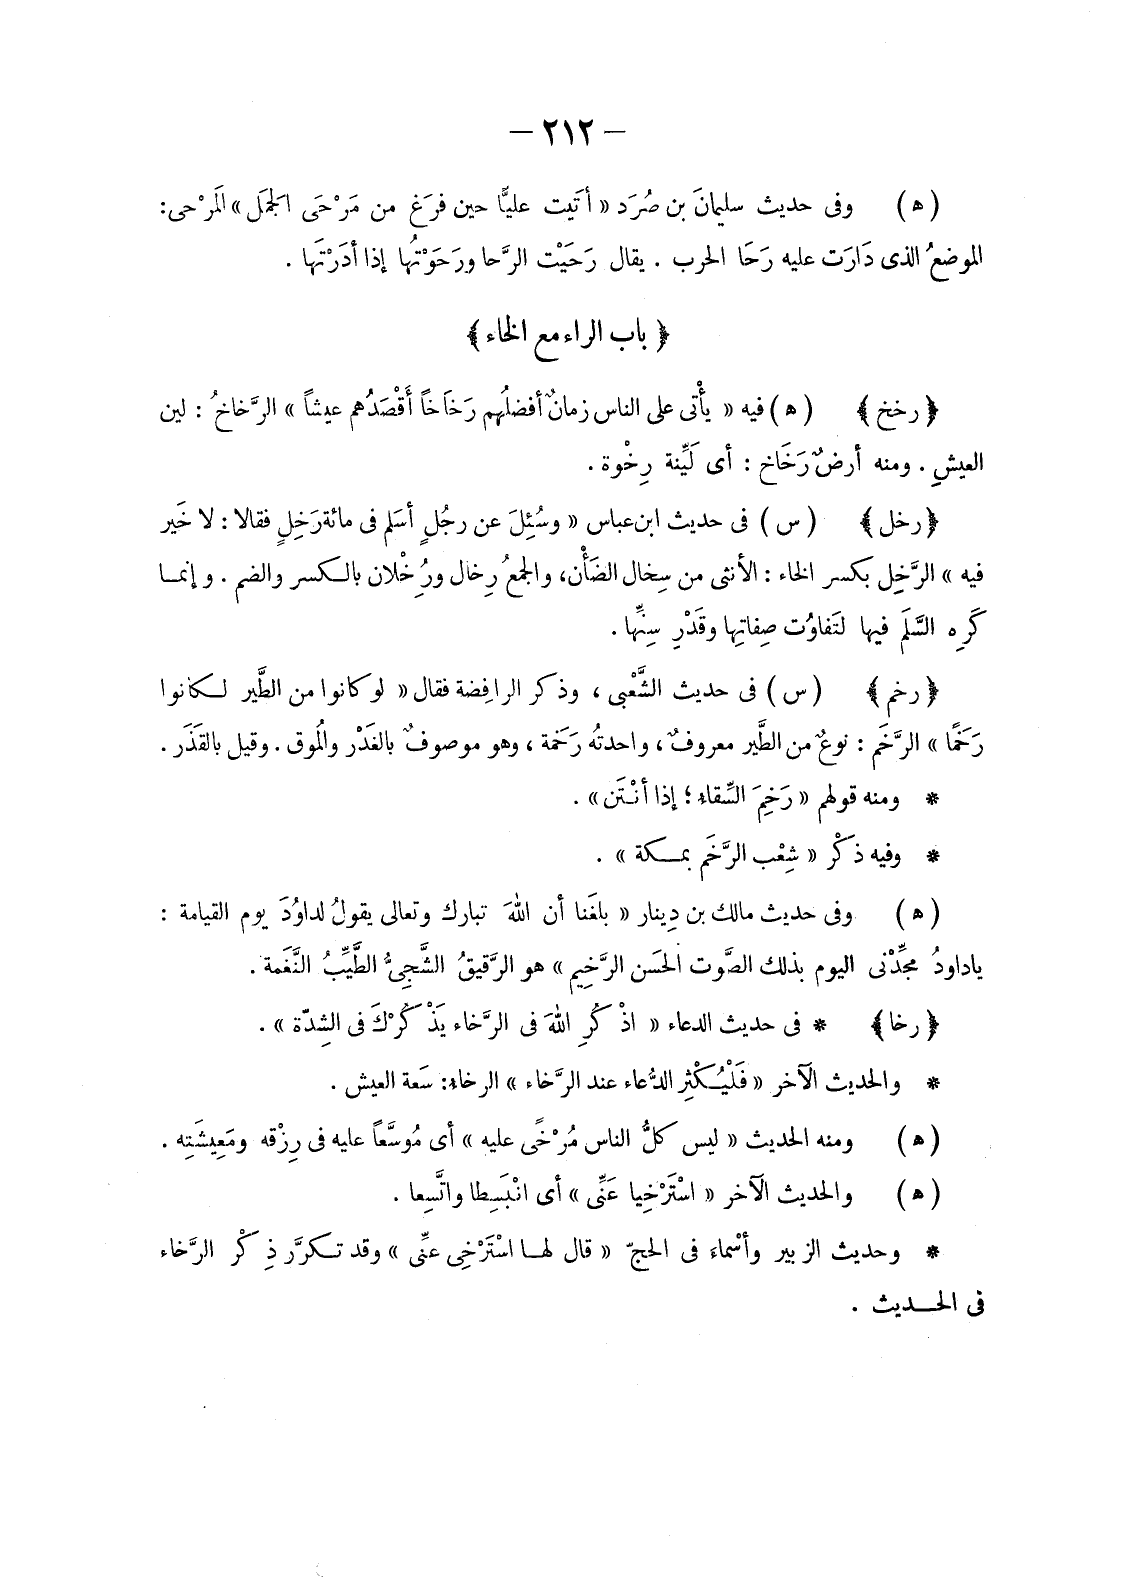 — ٢١٢ —
( ﻫ ) وفى حديث سليمانَ بن صُرَد « أتَيت عليًّا حين فرَغ من مَرْحَى الجَمَل » المَرْحى:
الموضعُ الذى دَارَت عليه رَحَا الحرب . يقال رَحَيْت الرَّحا ورَحَوْتُها إذا أدَرْتَها .
﴿ باب الراء مع الخاء ﴾
﴿ رخخ ﴾ ( ﻫ ) فيه « يأْتى على الناس زمانٌ أفضلُهم رَخَاخاً أَقْصَدُهم عيشاً » الرَّخاخُ : لين
العيشِ . ومنه أرضٌ رَخَاخ : أى لَيِّنة رِخْوة .
﴿ رخل ﴾ ( س ) فى حديث ابن عباس « وسُئِلَ عن رجُلٍ أسْلم فى مائة رَخِلٍ فقالا : لا خَير
فيه » الرَّخِل بكسر الخاء : الأنثى من سِخال الضَأْن، والجمعُ رِخال ورُِخْلان بالكسر والضم . وإنما
كَرِه السَّلَم فيها لتَفاوُت صِفاتِها وقَدْرِ سِنِّها .
﴿ رخم ﴾ ( س ) فى حديث الشَّعْبى ، وذكر الرافِضة فقال « لو كانوا من الطَّير لكانوا
رَخَمًا » الرَّخَم : نوعٌ من الطَّير معروفٌ، واحدتُه رَخَمة ، وهو موصوفٌ بالغَدْر والمُوق . وقيل بالقَذَر .
* ومنه قولهم « رَخِمَ السِّقاء ؛ إذا أنْتَن » .
* وفيه ذكْر « شِعْب الرَّخَم بمكة » .
( ﻫ ) وفى حديث مالك بن دِينار « بلغَنا أن اللهَ تبارك وتعالى يقولُ لداودَ يوم القيامة :
ياداودُ مجِّدْنى اليوم بذلك الصَّوت الحَسن الرَّخِيم » هو الرَّقيقُ الشَّجِىُّ الطَّيِّبُ النَّغَمة .
﴿ رخا ﴾ * فى حديث الدعاء « اذْكُرِ اللهَ فى الرَّخاء يَذْكُرْكَ فى الشِدّة » .
* والحديث الآخر « فَلْيُكْثِرِ الدُّعاء عند الرَّخاء » الرخاء: سَعة العيش .
( ﻫ ) ومنه الحديث « ليس كلُّ الناس مُرْخًى عليه » أى مُوسَّعاً عليه فى رِزْقه ومَعِيشَتِه .
( ﻫ ) والحديث الآخر « اسْتَرْخِيا عَنِّى » أى انْبَسِطا واتَّسِعا .
* وحديث الزبير وأسْماءَ فى الحجّ « قال لها اسْتَرْخِى عنِّى » وقد تكرَّر ذِكْر الرَّخاء
فى الحديث .